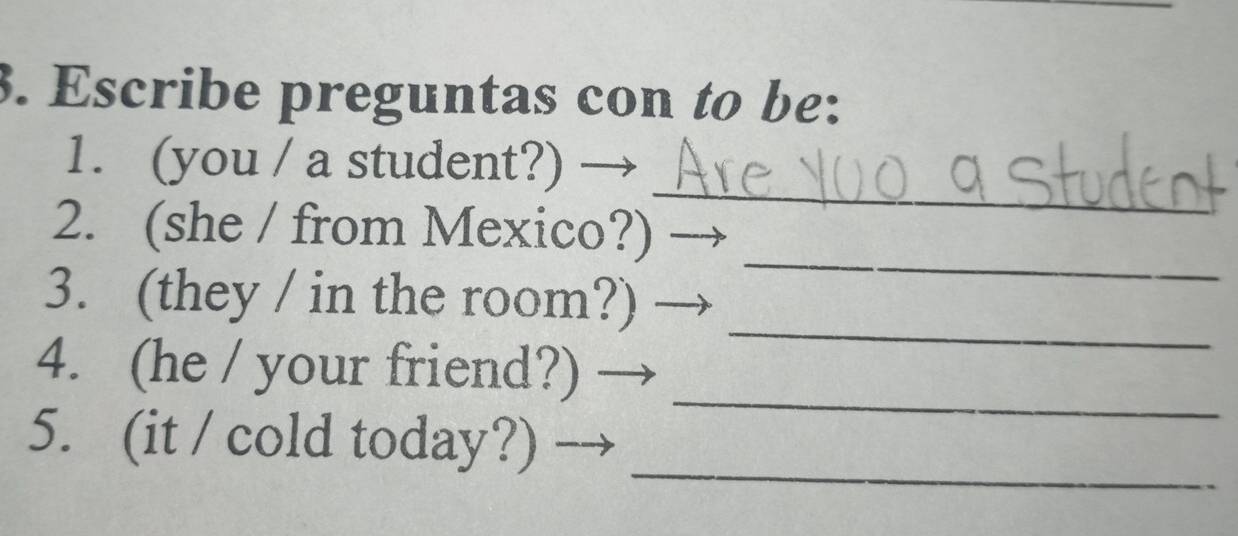 3. Escribe preguntas con to be:
1. (you / a student?) → Are yuo a student
2. (she / from Mexico?) →
3. (they / in the room?) →
4. (he / your friend?) →
5. (it / cold today?) →